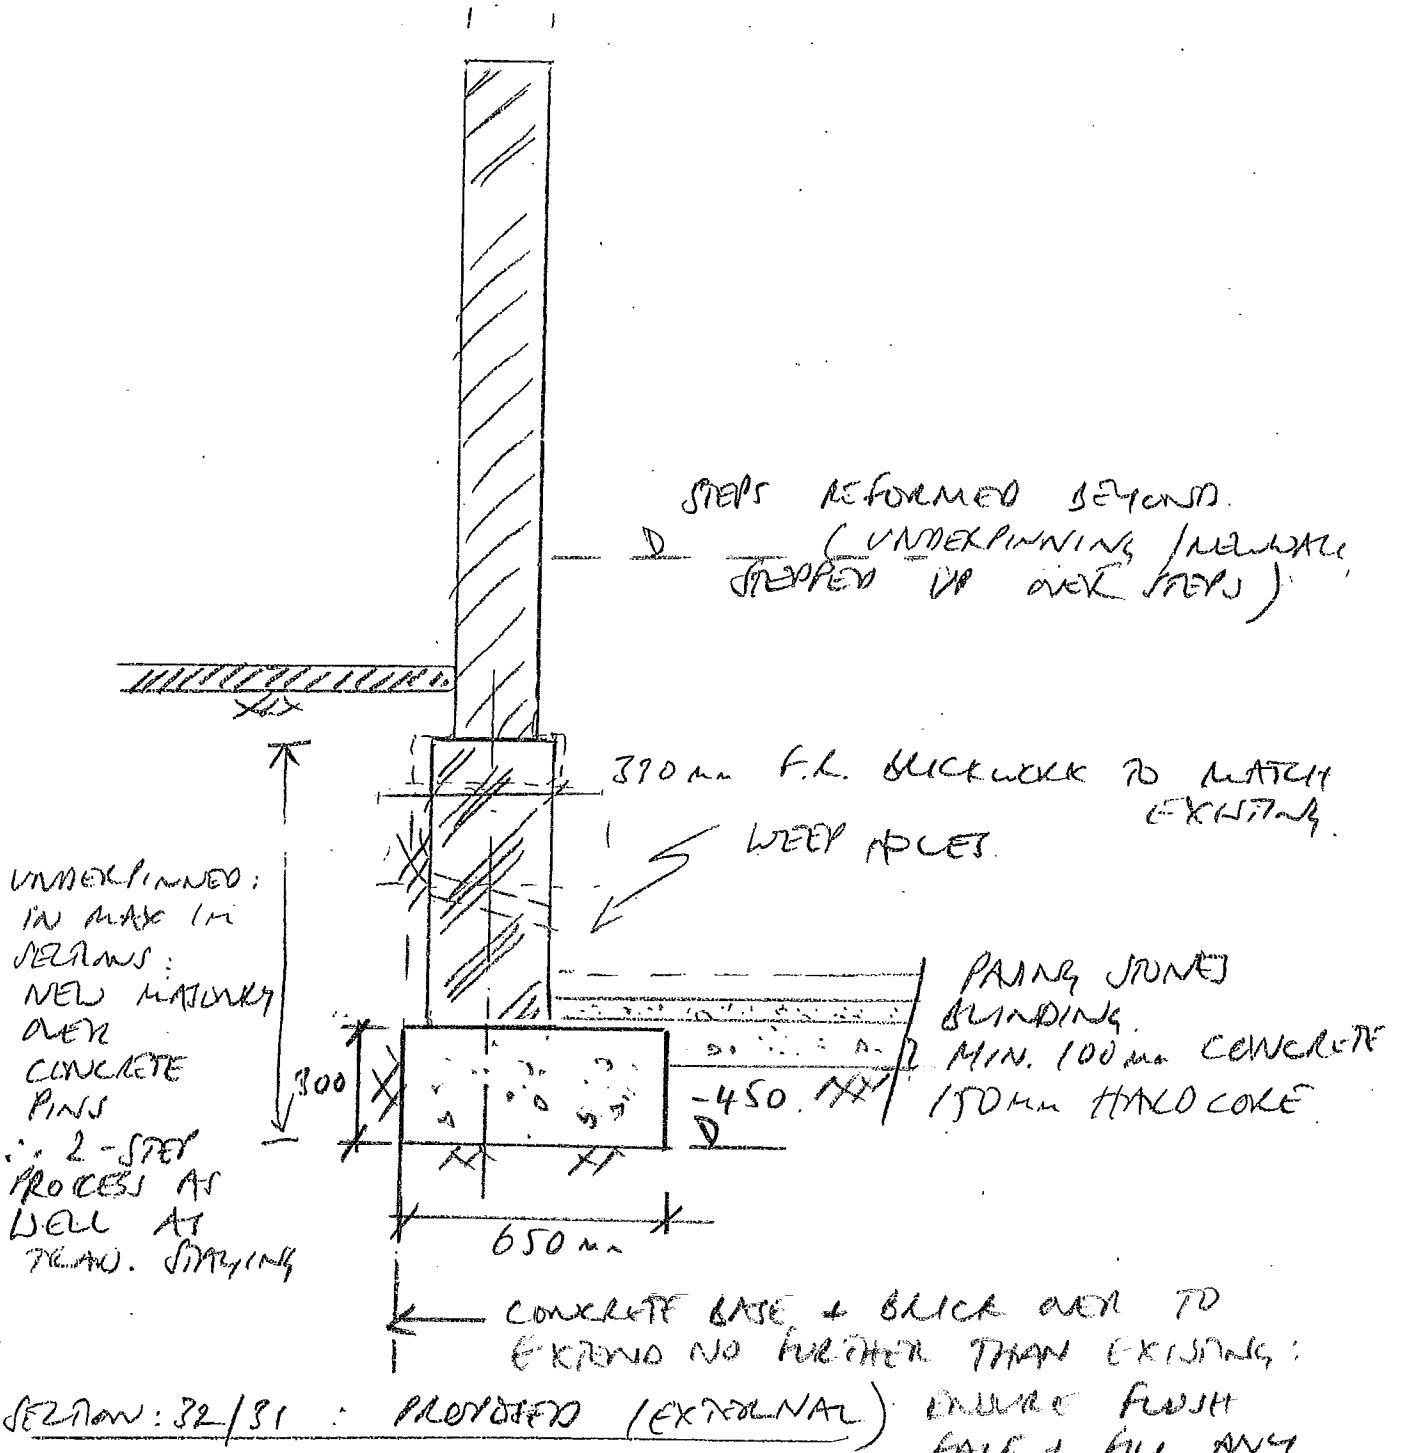 STEPS REFORMED BEYOND.
(UNDERPINNING / NEW WALL
STEPPED UP OVER STEPS)
F.R. BRICKWORK TO MATCH
EXISTING.
WEEP HOLES.
UNDERPINNED:
IN MAX 1m
SECTIONS:
NEW MASONRY
OVER
CONCRETE
PINS
∴ 2-STEP
PROCESS AS
WELL AS
TRAN. STAGING
PAVING STONES
BLINDING.
MIN. 100mm CONCRETE
150mm HARDCORE
300
-450.
650mm
CONCRETE BASE + BRICK OVER TO
EXTEND NO FURTHER THAN EXISTING:
ENSURE FLUSH
FACE + FILL ANY
SECTION: 32/31 : PROPOSED (EXTERNAL)